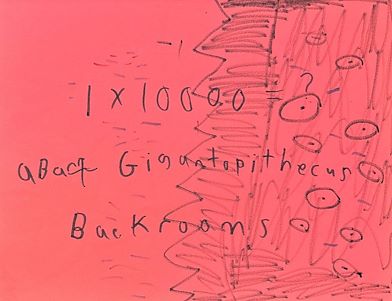 -1
1 X 10000 = ?
Gigantopithecus
Backrooms